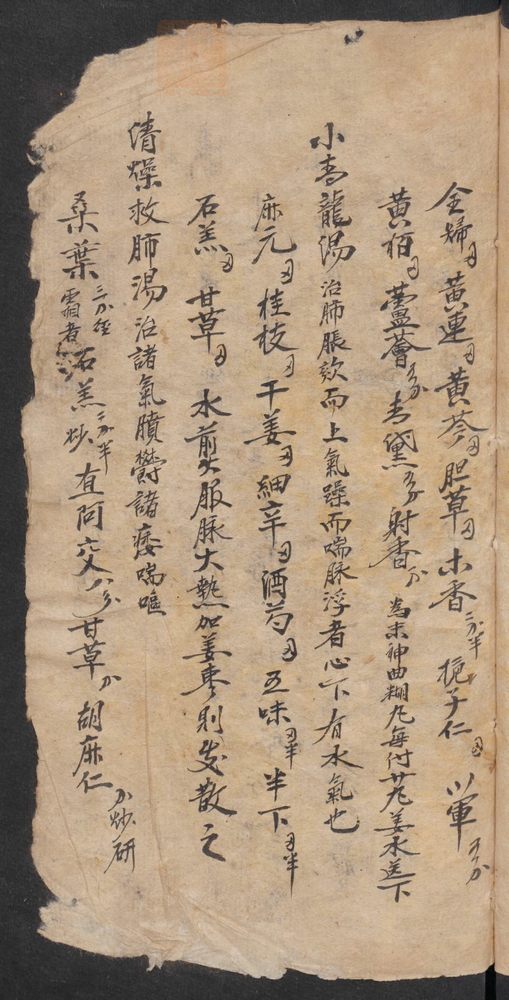 全歸 黄連 黄芩 胆草 木香二分半 梔子仁 川軍五分
黄栢 蘆薈五分 青黛五分 射香 分 為末神曲糊丸每付廿丸姜水送下
小青龍湯 治肺脹欬而上氣躁而喘脉浮者心下有水氣也
麻元 桂枝 干姜 細辛 酒芍 五味 半 半下 半
石羔 甘草 水煎服脉大熱加姜枣則发散之
清燥救肺湯 治諸氣膹鬱諸痿喘嘔
桑葉三分經霜者 石羔二分半炒 直阿 八分 甘草 分 胡麻仁 分炒研